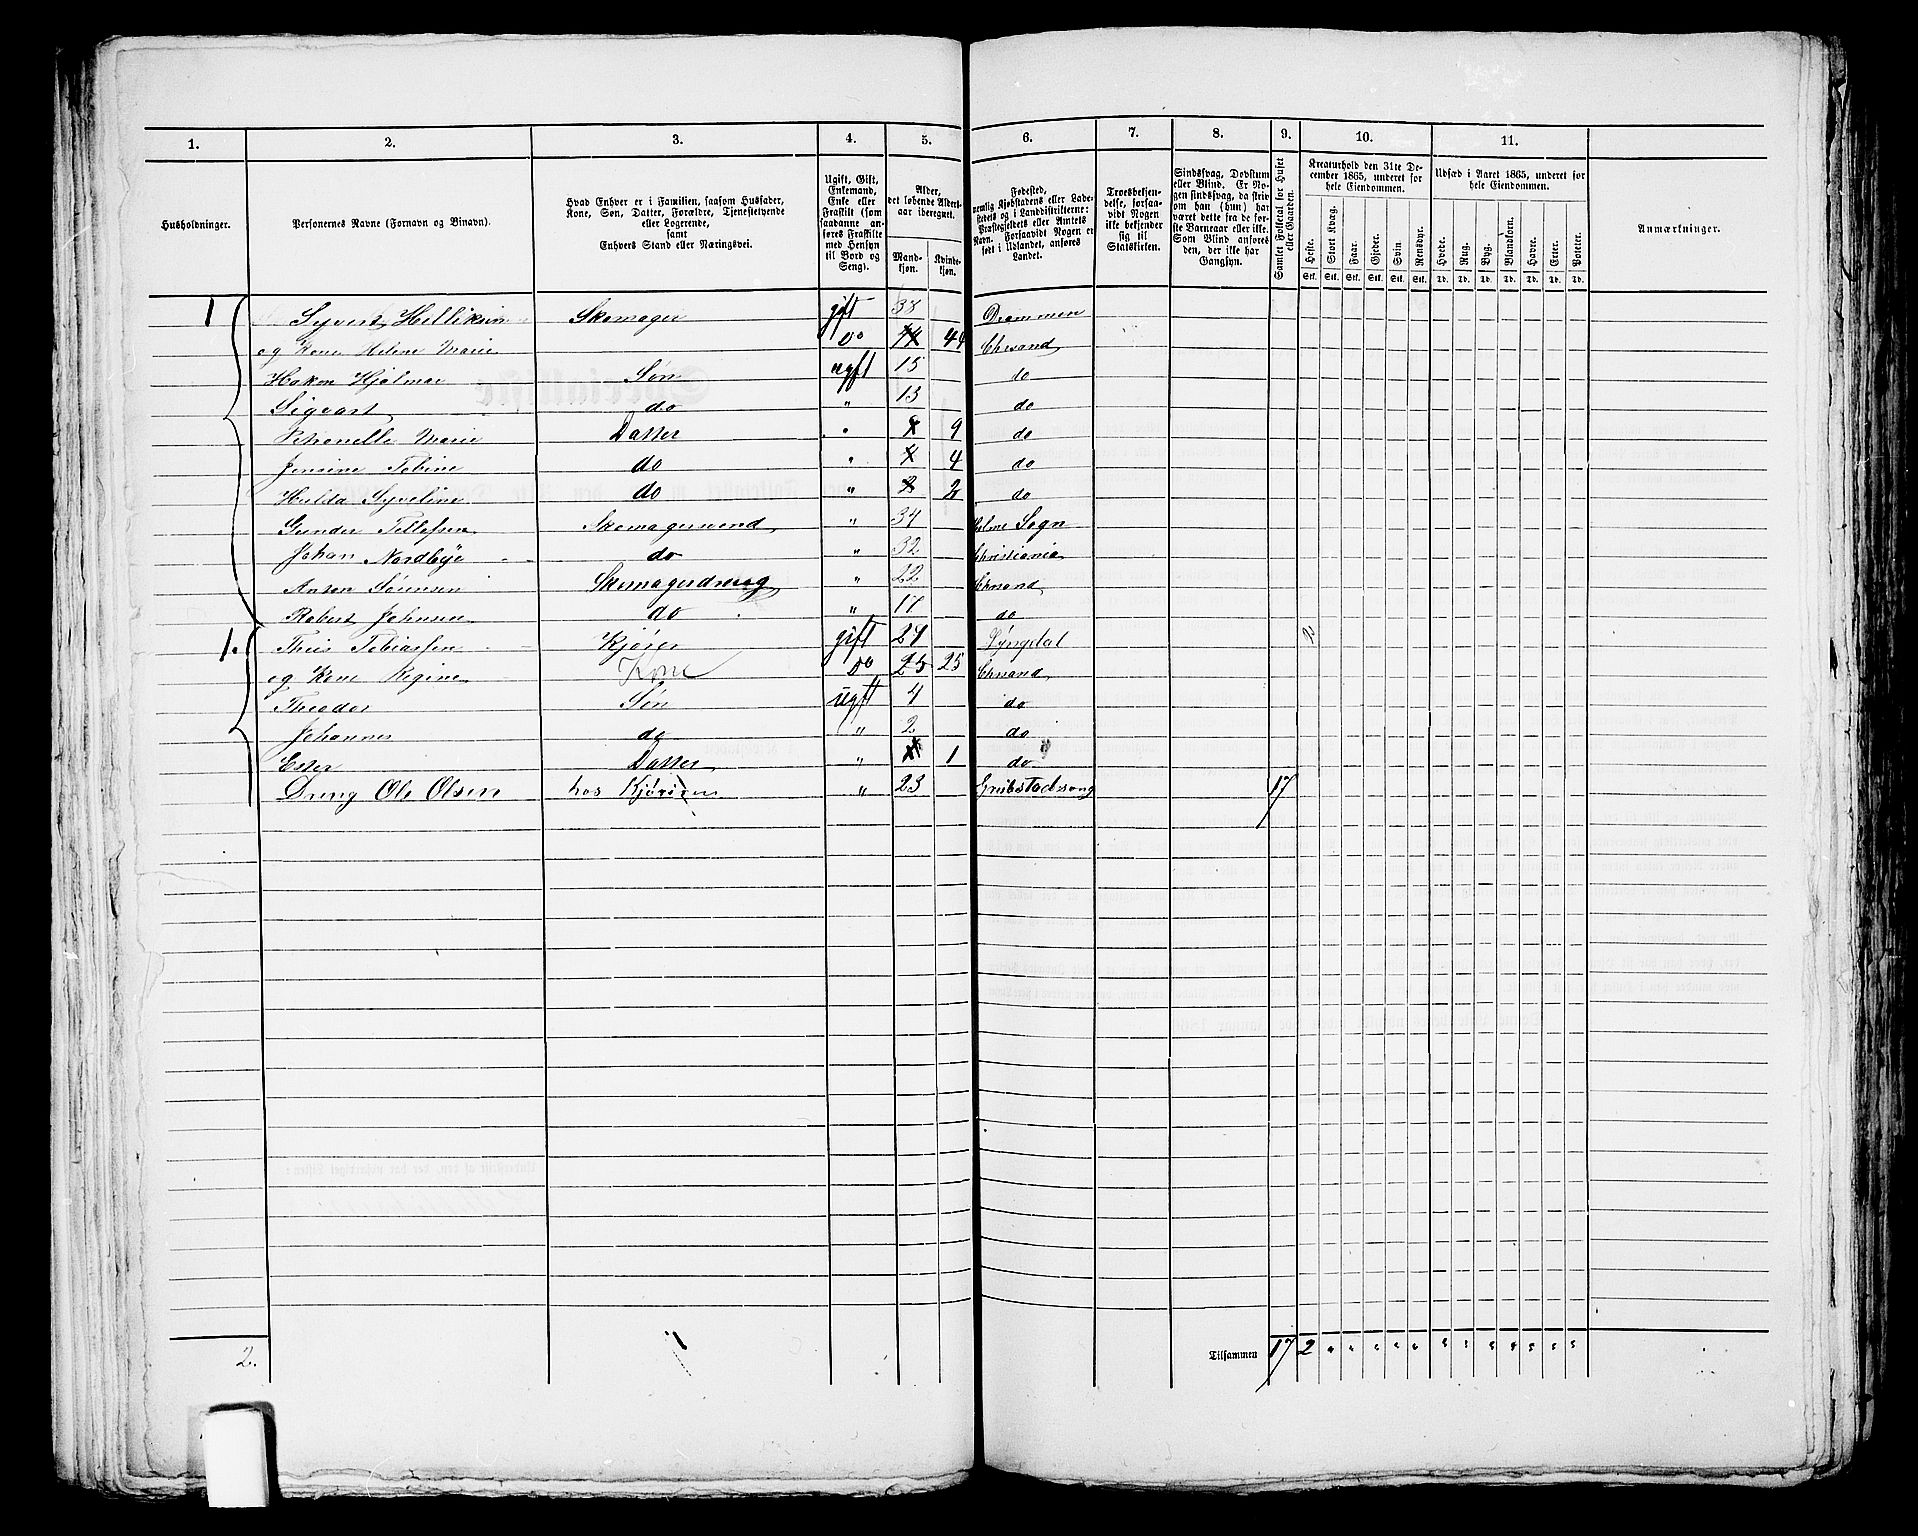 1. 2. 3. 4. 5. 6. 7. 8. 9. 10. 11.
Husholdninger.
Personernes Navne (Fornavn og Binavn).
Hvad Enhver er i Familien, saasom Husfader,
Kone, Søn, Datter, Forældre, Tjenestetyende
eller Logerende,
samt
Enhvers Stand eller Næringsvei.
Ugift, Gift,
Enkemand,
Enke eller
Fraskilt (som
saadanne an-
føres Fraskilte
med Hensyn
til Bord og
Seng).
Alder,
det løbende Alders-
aar iberegnet.
Mand-
kjøn.
Kvinde-
kjøn.
Fødested,
nemlig Kjøbstadens eller Lade-
stedets og i Landdistrikterne:
Præstegjeldets eller Amtets
Navn. Forsaavidt Nogen er
født i Udlandet, anføres
Landet.
Troesbekjen-
delse, forsaa-
vidt Nogen
ikke bekjender
sig til
Statskirken.
Sindssvag, Døvstum
eller Blind. Er No-
gen sindssvag, da skriv
om han (hun) har
været dette fra de før-
ste Barneaar eller ikke.
Som Blind anføres
den, der ikke har
Gangsyn.
Samlet Folketal for Huset
eller Gaarden.
Kreaturhold den 31te De-
cember 1865, underet for
hele Eiendommen.
Heste. Stort Kvæg. Faar. Gjeder. Svin. Rensdyr.
Stk. Stk. Stk. Stk. Stk. Stk.
Udsæd i Aaret 1865, underet for
hele Eiendommen.
Hvede. Rug. Byg. Blandkorn. Havre. Erter. Poteter.
Td. Td. Td. Td. Td. Td. Td.
Anmærkninger.
1 Syvert Helliksen Skomager gift 38 Drammen
og Kone Helene Marie do 44 44 Chrsand
Hakon Hjalmar Søn ugft 15 do
Sigvart do " 13 do
Petronelle Marie Datter " 9 do
Jensine Tobine do " 4 4 do
Hulda Syveline do " 2 2 do
Gunder Tellefsen Skomagersvend " 34 Holme Sogn
Johan Nordbye do " 32 Christiania
Anton Sørensen Skomagerdreng " 22 Chrsand
Robert Johnsen do " 17 do
1. Theis Tobiassen Kjører gift 29 Lyngdal 2
og Kone Regine Kone do 25 25 Chrsand
Theodor Søn ugft 4 do
Johannes do " 2 do
Ester Datter " 1 do
Dreng Ole Olsen hos Kjøreren " 23 17
2.
Tilsammen 17 2 " " " " " " " " " " " "